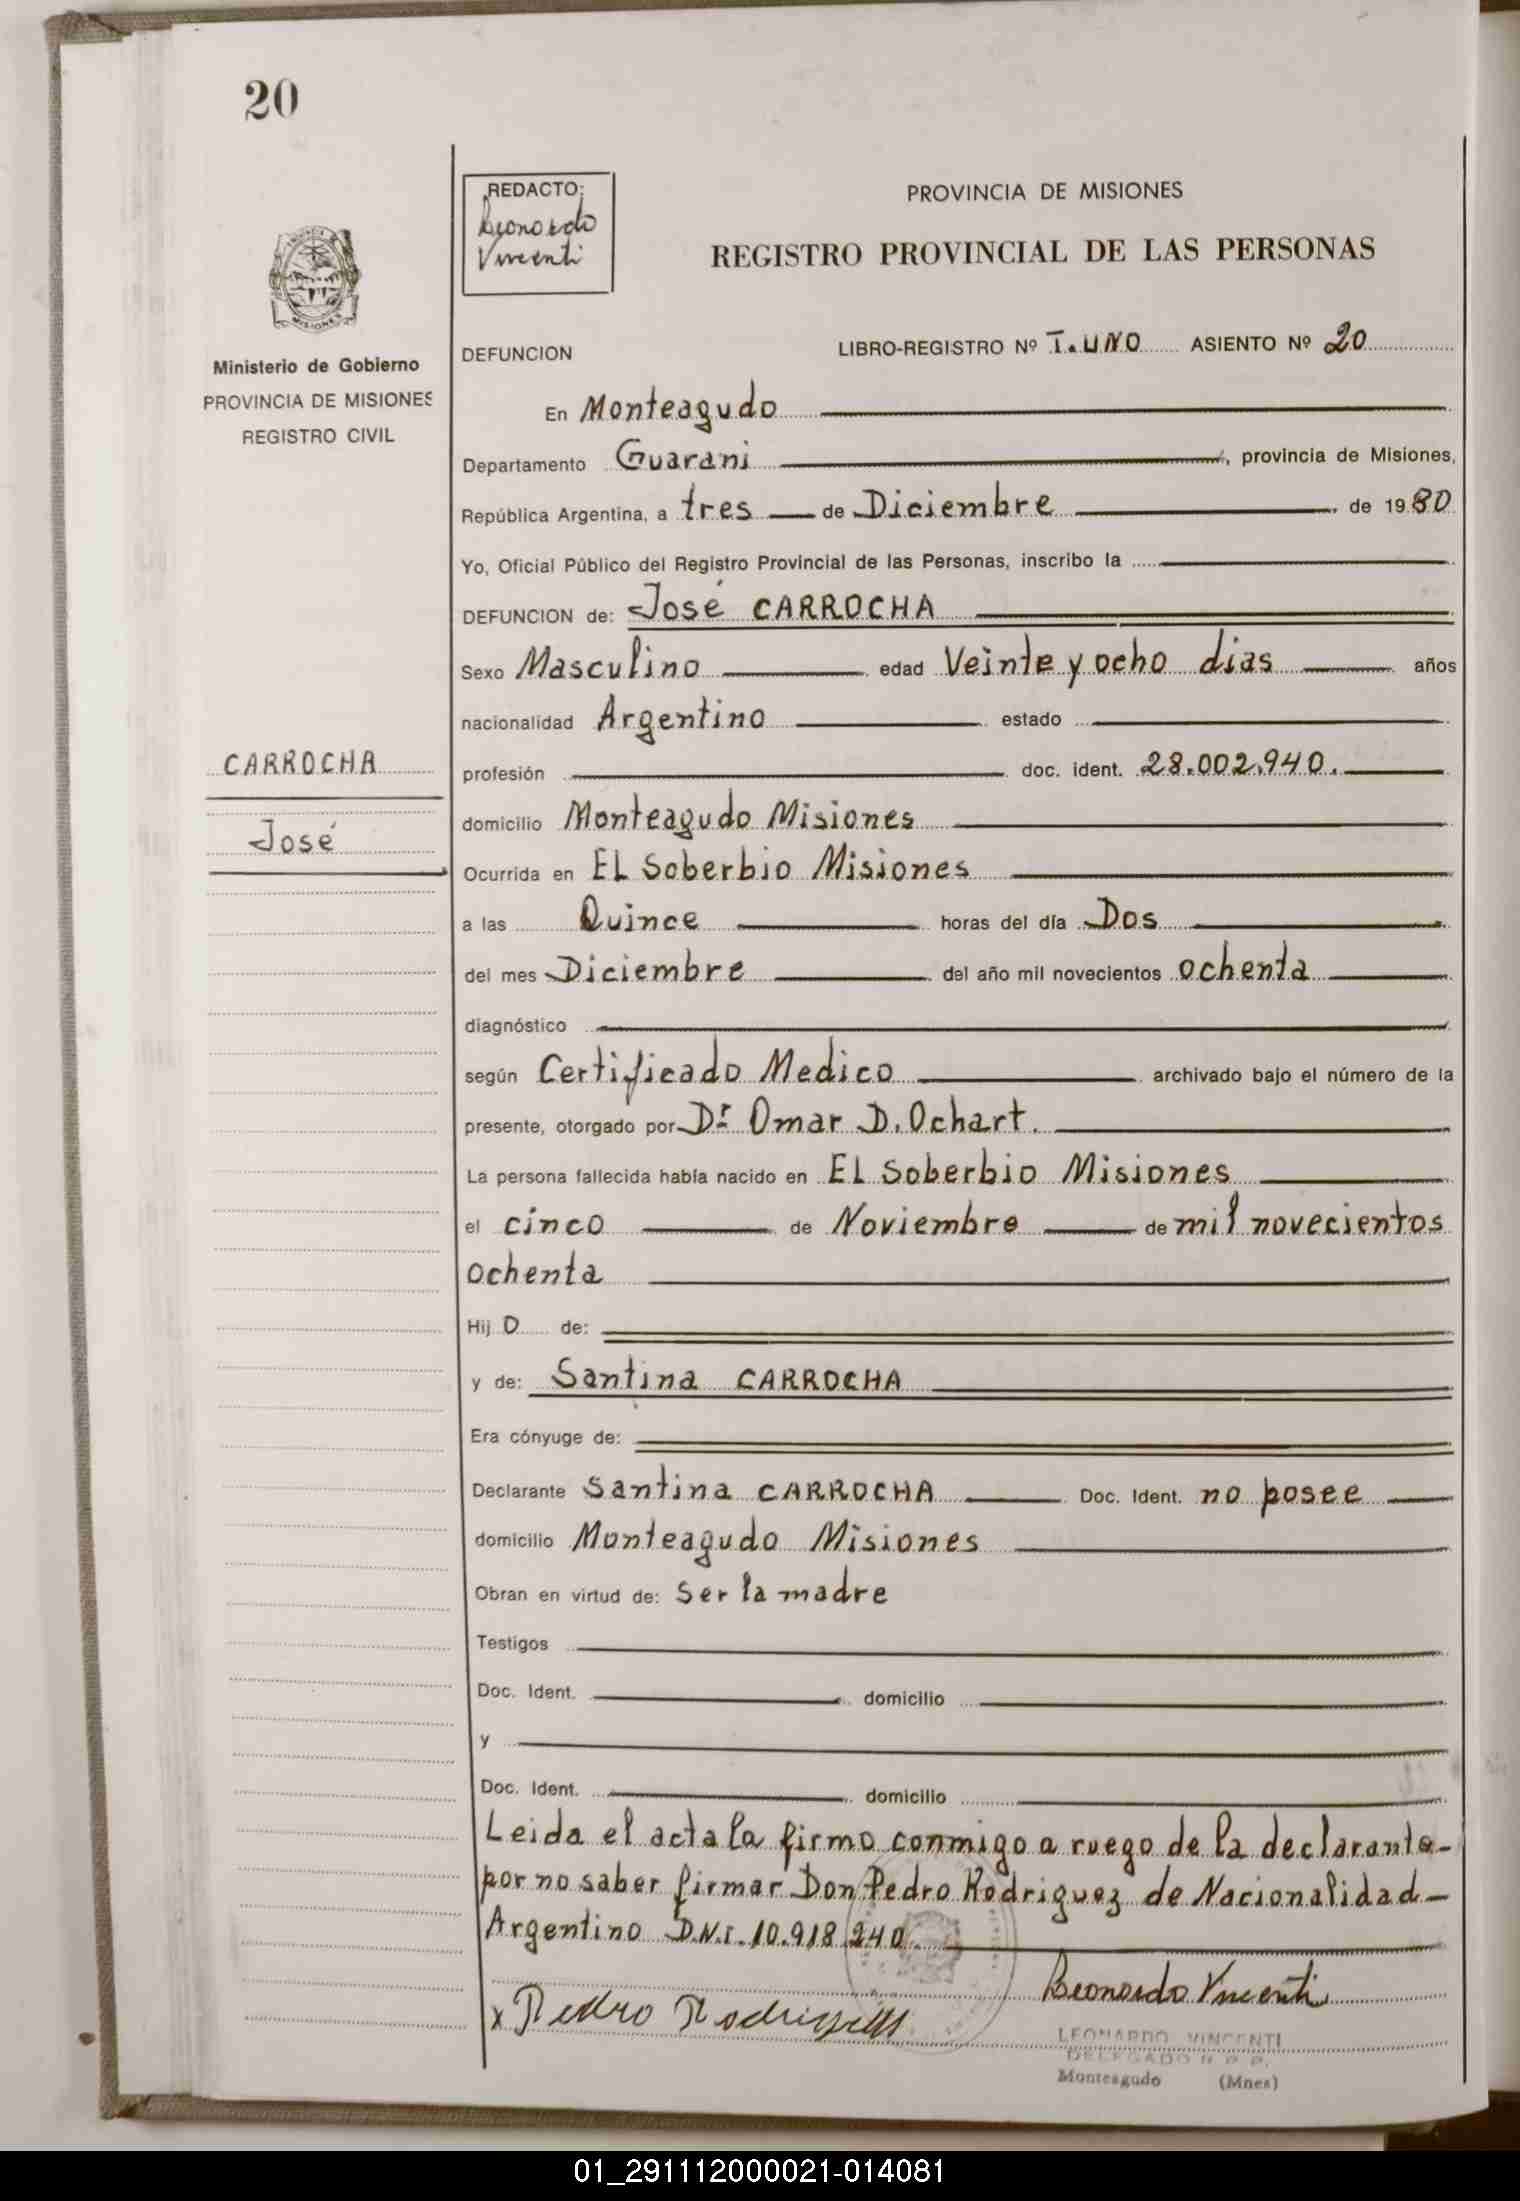 20
REDACTO:
Leonardo
Vincenti
PROVINCIA DE MISIONES
REGISTRO PROVINCIAL DE LAS PERSONAS
MISIONES
Ministerio de Gobierno
PROVINCIA DE MISIONES
REGISTRO CIVIL
DEFUNCION
LIBRO-REGISTRO Nº T. UNO ASIENTO Nº 20
En Monteagudo
Departamento Guarani, provincia de Misiones,
República Argentina, a tres de Diciembre de 1980
Yo, Oficial Público del Registro Provincial de las Personas, inscribo la
DEFUNCION de: José CARROCHA
Sexo Masculino edad Veinte y ocho dias años
nacionalidad Argentino estado
CARROCHA
José
profesión doc. ident. 28.002.940.
domicilio Monteagudo Misiones
Ocurrida en EL Soberbio Misiones
a las Quince horas del día Dos
del mes Diciembre del año mil novecientos ochenta
diagnóstico
según Certificado Medico archivado bajo el número de la
presente, otorgado por Dr Omar D. Ochart.
La persona fallecida había nacido en EL Soberbio Misiones
el cinco de Noviembre de mil novecientos
ochenta
Hij o de:
y de: Santina CARROCHA
Era cónyuge de:
Declarante Santina CARROCHA Doc. Ident. no posee
domicilio Monteagudo Misiones
Obran en virtud de: Ser la madre
Testigos
Doc. Ident. domicilio
y
Doc. Ident. domicilio
Leida el acta la firmo conmigo a ruego de la declarante-
por no saber firmar Don Pedro Rodriguez de Nacionalidad-
Argentino D.N.I. 10.918.240.
x Pedro Rodriguez
Leonardo Vincenti
LEONARDO VINCENTI
DELEGADO R. P. P.
Monteagudo (Mnes)
01_291112000021-014081